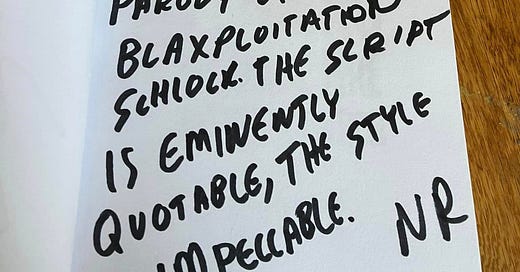 PARODY OF
BLAXPLOITATION
SCHLOCK. THE SCRIPT
IS EMINENTLY
QUOTABLE, THE STYLE
IMPECCABLE.
NR